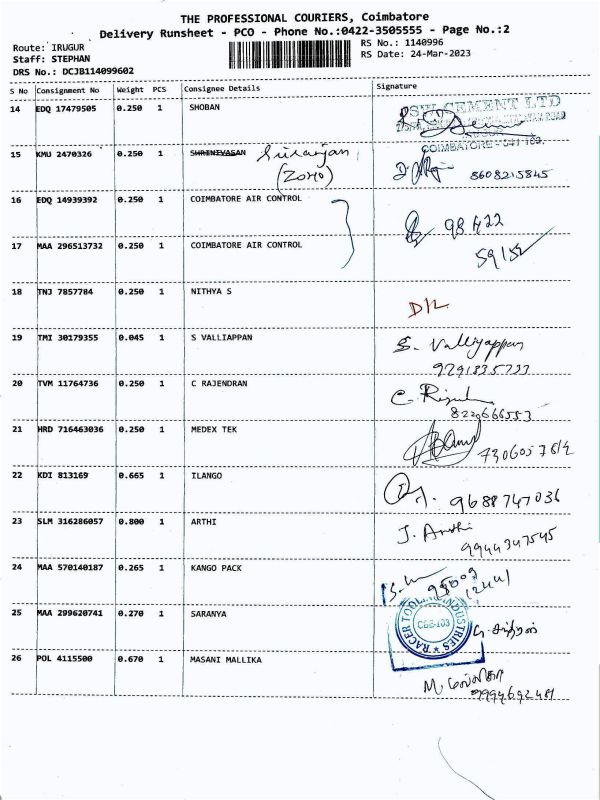 THE PROFESSIONAL COURIERS, Coimbatore
Delivery Runsheet - PCO - Phone No.:0422-3505555 - Page No.:2
Route: IRUGUR
RS No.: 1140996
Staff: STEPHAN
RS Date: 24-Mar-2023
DRS No.: DCJB114099602
S No Consignment No Weight PCS Consignee Details Signature
14 EDQ 17479505 0.250 1 SHOBAN
CEMENT LTD
COIMBATORE - 641 103.
15 KMU 2470326 0.250 1 SHRINIVASAN Sriranjan
(ZOHO) 8608215845
16 EDQ 14939392 0.250 1 COIMBATORE AIR CONTROL
98422
17 MAA 296513732 0.250 1 COIMBATORE AIR CONTROL
59152
18 TNJ 7857784 0.250 1 NITHYA S
D/L
19 TMI 30179355 0.045 1 S VALLIAPPAN
S. Valliyappan
9291835733
20 TVM 11764736 0.250 1 C RAJENDRAN
8220666553
21 HRD 716463036 0.250 1 MEDEX TEK
22 KDI 813169 0.665 1 ILANGO
9688747036
23 SLM 316286057 0.800 1 ARTHI
J. Arthi
9944347545
24 MAA 570140187 0.265 1 KANGO PACK
25 MAA 299620741 0.270 1 SARANYA
RACER TOOLING INDUSTRIES
CBE-103
26 POL 4115500 0.670 1 MASANI MALLIKA
M. மல்லிகா
9994692481